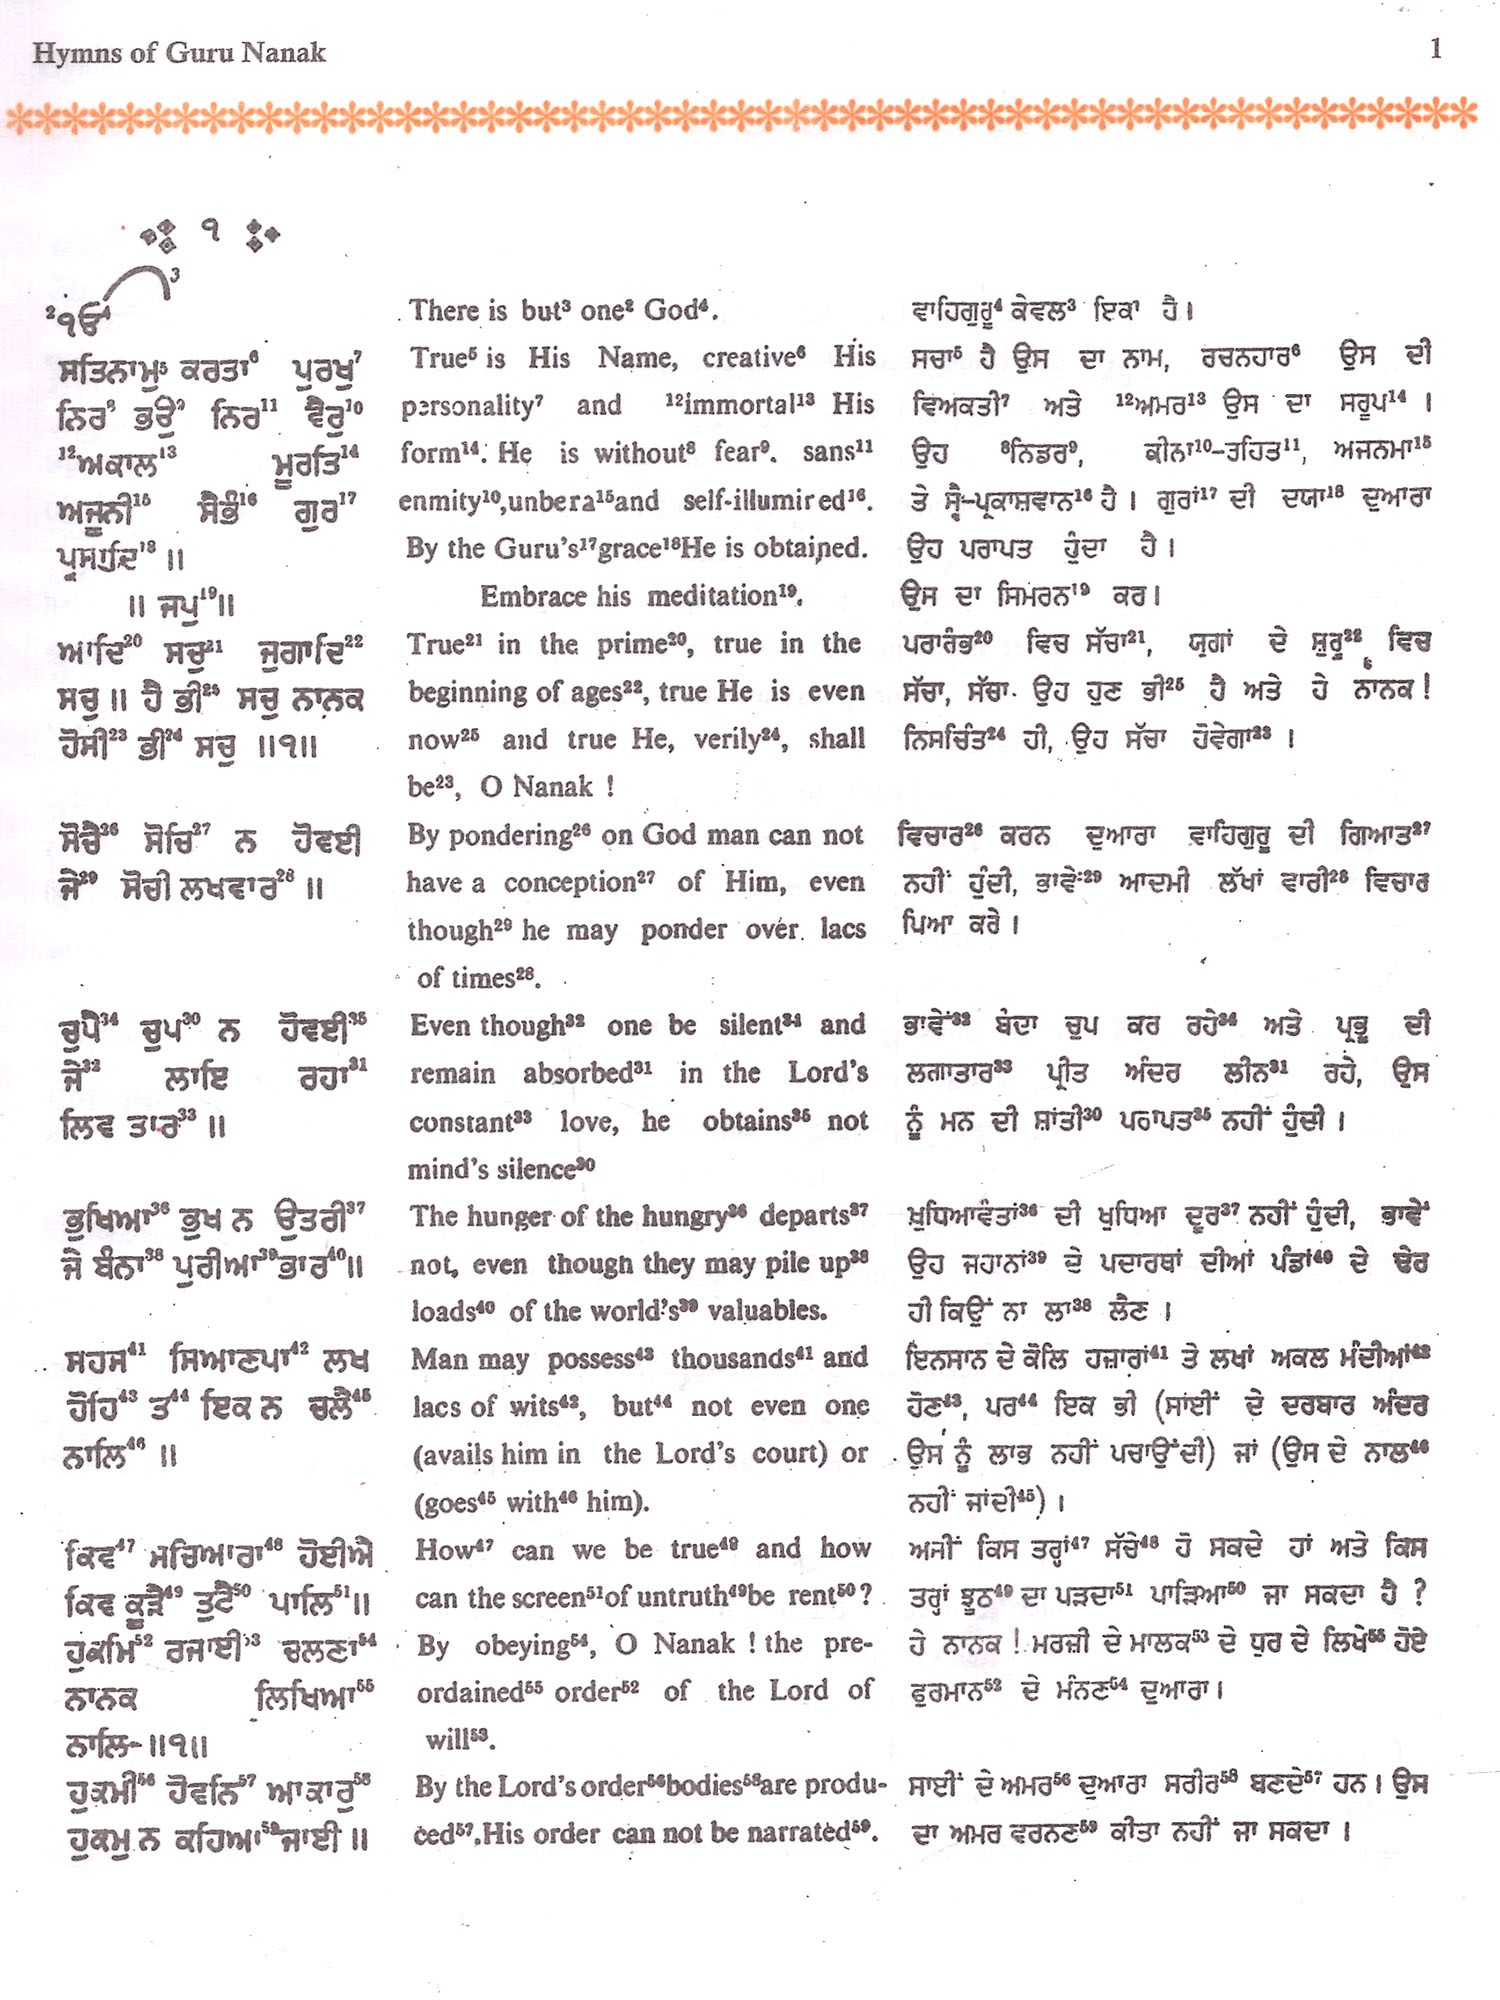 Hymns of Guru Nanak
1
੧
²ੴ⁴ ³
ਸਤਿਨਾਮੁ⁵ ਕਰਤਾ⁶ ਪੁਰਖੁ⁷
ਨਿਰ⁸ ਭਉ⁹ ਨਿਰ¹¹ ਵੈਰੁ¹⁰
¹²ਅਕਾਲ¹³ ਮੂਰਤਿ¹⁴
ਅਜੂਨੀ¹⁵ ਸੈਭੰ¹⁶ ਗੁਰ¹⁷
ਪ੍ਰਸਾਦਿ¹⁸ ॥
॥ ਜਪੁ¹⁹॥
ਆਦਿ²⁰ ਸਚੁ²¹ ਜੁਗਾਦਿ²²
ਸਚੁ ॥ ਹੈ ਭੀ²⁵ ਸਚੁ ਨਾਨਕ
ਹੋਸੀ²³ ਭੀ²⁴ ਸਚੁ ॥੧॥
ਸੋਚੈ²⁶ ਸੋਚਿ²⁷ ਨ ਹੋਵਈ
ਜੇ²⁹ ਸੋਚੀ ਲਖਵਾਰ²⁸ ॥
ਚੁਪੈ³⁴ ਚੁਪ³⁰ ਨ ਹੋਵਈ³⁵
ਜੇ³² ਲਾਇ ਰਹਾ³¹
ਲਿਵ ਤਾਰ³³ ॥
ਭੁਖਿਆ³⁶ ਭੁਖ ਨ ਉਤਰੀ³⁷
ਜੇ ਬੰਨਾ³⁸ ਪੁਰੀਆ³⁹ਭਾਰ⁴⁰॥
ਸਹਸ⁴¹ ਸਿਆਣਪਾ⁴² ਲਖ
ਹੋਹਿ⁴³ ਤ⁴⁴ ਇਕ ਨ ਚਲੈ⁴⁵
ਨਾਲਿ⁴⁶ ॥
ਕਿਵ⁴⁷ ਸਚਿਆਰਾ⁴⁸ ਹੋਈਐ
ਕਿਵ ਕੂੜੈ⁴⁹ ਤੁਟੈ⁵⁰ ਪਾਲਿ⁵¹॥
ਹੁਕਮਿ⁵² ਰਜਾਈ⁵³ ਚਲਣਾ⁵⁴
ਨਾਨਕ ਲਿਖਿਆ⁵⁵
ਨਾਲਿ-॥੧॥
ਹੁਕਮੀ⁵⁶ ਹੋਵਨਿ⁵⁷ ਆਕਾਰੁ⁵⁸
ਹੁਕਮੁ ਨ ਕਹਿਆ⁵⁹ਜਾਈ ॥
There is but³ one² God⁴.
True⁵ is His Name, creative⁶ His
personality⁷ and ¹²immortal¹³ His
form¹⁴. He is without⁸ fear⁹. sans¹¹
enmity¹⁰,unbera¹⁵and self-illumired¹⁶.
By the Guru's¹⁷grace¹⁸He is obtained.
Embrace his meditation¹⁹.
True²¹ in the prime²⁰, true in the
beginning of ages²², true He is even
now²⁵ and true He, verily²⁴, shall
be²³, O Nanak !
By pondering²⁶ on God man can not
have a conception²⁷ of Him, even
though²⁹ he may ponder over lacs
of times²⁸.
Even though³² one be silent³⁴ and
remain absorbed³¹ in the Lord's
constant³³ love, he obtains³⁵ not
mind's silence³⁰
The hunger of the hungry³⁶ departs³⁷
not, even though they may pile up³⁸
loads⁴⁰ of the world's³⁹ valuables.
Man may possess⁴³ thousands⁴¹ and
lacs of wits⁴², but⁴⁴ not even one
(avails him in the Lord's court) or
(goes⁴⁵ with⁴⁶ him).
How⁴⁷ can we be true⁴⁸ and how
can the screen⁵¹of untruth⁴⁹be rent⁵⁰ ?
By obeying⁵⁴, O Nanak ! the pre-
ordained⁵⁵ order⁵² of the Lord of
will⁵³.
By the Lord's order⁵⁶bodies⁵⁸are produ-
ced⁵⁷.His order can not be narrated⁵⁹.
ਵਾਹਿਗੁਰੂ⁴ ਕੇਵਲ³ ਇਕ² ਹੈ।
ਸਚਾ⁵ ਹੈ ਉਸ ਦਾ ਨਾਮ, ਰਚਨਹਾਰ⁶ ਉਸ ਦੀ
ਵਿਅਕਤੀ⁷ ਅਤੇ ¹²ਅਮਰ¹³ ਉਸ ਦਾ ਸਰੂਪ¹⁴ ।
ਉਹ ⁸ਨਿਡਰ⁹, ਕੀਨਾ¹⁰-ਰਹਿਤ¹¹, ਅਜਨਮਾ¹⁵
ਤੇ ਸ੍ਵੈ-ਪ੍ਰਕਾਸ਼ਵਾਨ¹⁶ ਹੈ । ਗੁਰਾਂ¹⁷ ਦੀ ਦਯਾ¹⁸ ਦੁਆਰਾ
ਉਹ ਪਰਾਪਤ ਹੁੰਦਾ ਹੈ।
ਉਸ ਦਾ ਸਿਮਰਨ¹⁹ ਕਰ।
ਪਰਾਰੰਭ²⁰ ਵਿਚ ਸੱਚਾ²¹, ਯੁਗਾਂ ਦੇ ਸ਼ੁਰੂ²² ਵਿਚ
ਸੱਚਾ, ਸੱਚਾ ਉਹ ਹੁਣ ਭੀ²⁵ ਹੈ ਅਤੇ ਹੇ ਨਾਨਕ!
ਨਿਸਚਿੰਤ²⁴ ਹੀ, ਉਹ ਸੱਚਾ ਹੋਵੇਗਾ²³ ।
ਵਿਚਾਰ²⁶ ਕਰਨ ਦੁਆਰਾ ਵਾਹਿਗੁਰੂ ਦੀ ਗਿਆਤ²⁷
ਨਹੀਂ ਹੁੰਦੀ, ਭਾਵੇਂ²⁹ ਆਦਮੀ ਲੱਖਾਂ ਵਾਰੀ²⁸ ਵਿਚਾਰ
ਪਿਆ ਕਰੇ ।
ਭਾਵੇਂ³² ਬੰਦਾ ਚੁਪ ਕਰ ਰਹੇ³⁴ ਅਤੇ ਪ੍ਰਭੂ ਦੀ
ਲਗਾਤਾਰ³³ ਪ੍ਰੀਤ ਅੰਦਰ ਲੀਨ³¹ ਰਹੇ, ਉਸ
ਨੂੰ ਮਨ ਦੀ ਸ਼ਾਂਤੀ³⁰ ਪਰਾਪਤ³⁵ ਨਹੀਂ ਹੁੰਦੀ ।
ਖ਼ੁਧਿਆਵੰਤਾਂ³⁶ ਦੀ ਖੁਧਿਆ ਦੂਰ³⁷ ਨਹੀਂ ਹੁੰਦੀ, ਭਾਵੇਂ
ਉਹ ਜਹਾਨਾਂ³⁹ ਦੇ ਪਦਾਰਥਾਂ ਦੀਆਂ ਪੰਡਾਂ⁴⁰ ਦੇ ਢੇਰ
ਹੀ ਕਿਉਂ ਨਾ ਲਾ³⁸ ਲੈਣ ।
ਇਨਸਾਨ ਦੇ ਕੋਲਿ ਹਜ਼ਾਰਾਂ⁴¹ ਤੇ ਲਖਾਂ ਅਕਲ ਮੰਦੀਆਂ⁴²
ਹੋਣ⁴³, ਪਰ⁴⁴ ਇਕ ਭੀ (ਸਾਂਈਂ ਦੇ ਦਰਬਾਰ ਅੰਦਰ
ਉਸ ਨੂੰ ਲਾਭ ਨਹੀਂ ਪਚਾਉਂਦੀ) ਜਾਂ (ਉਸ ਦੇ ਨਾਲ⁴⁶
ਨਹੀਂ ਜਾਂਦੀ⁴⁵) ।
ਅਸੀਂ ਕਿਸ ਤਰ੍ਹਾਂ⁴⁷ ਸੱਚੇ⁴⁸ ਹੋ ਸਕਦੇ ਹਾਂ ਅਤੇ ਕਿਸ
ਤਰ੍ਹਾਂ ਝੂਠ⁴⁹ ਦਾ ਪੜਦਾ⁵¹ ਪਾੜਿਆ⁵⁰ ਜਾ ਸਕਦਾ ਹੈ ?
ਹੇ ਨਾਨਕ ! ਮਰਜ਼ੀ ਦੇ ਮਾਲਕ⁵³ ਦੇ ਧੁਰ ਦੇ ਲਿਖੇ⁵⁵ ਹੋਏ
ਫੁਰਮਾਨ⁵² ਦੇ ਮੰਨਣ⁵⁴ ਦੁਆਰਾ।
ਸਾਈਂ ਦੇ ਅਮਰ⁵⁶ ਦੁਆਰਾ ਸਰੀਰ⁵⁸ ਬਣਦੇ⁵⁷ ਹਨ । ਉਸ
ਦਾ ਅਮਰ ਵਰਨਣ⁵⁹ ਕੀਤਾ ਨਹੀਂ ਜਾ ਸਕਦਾ ।